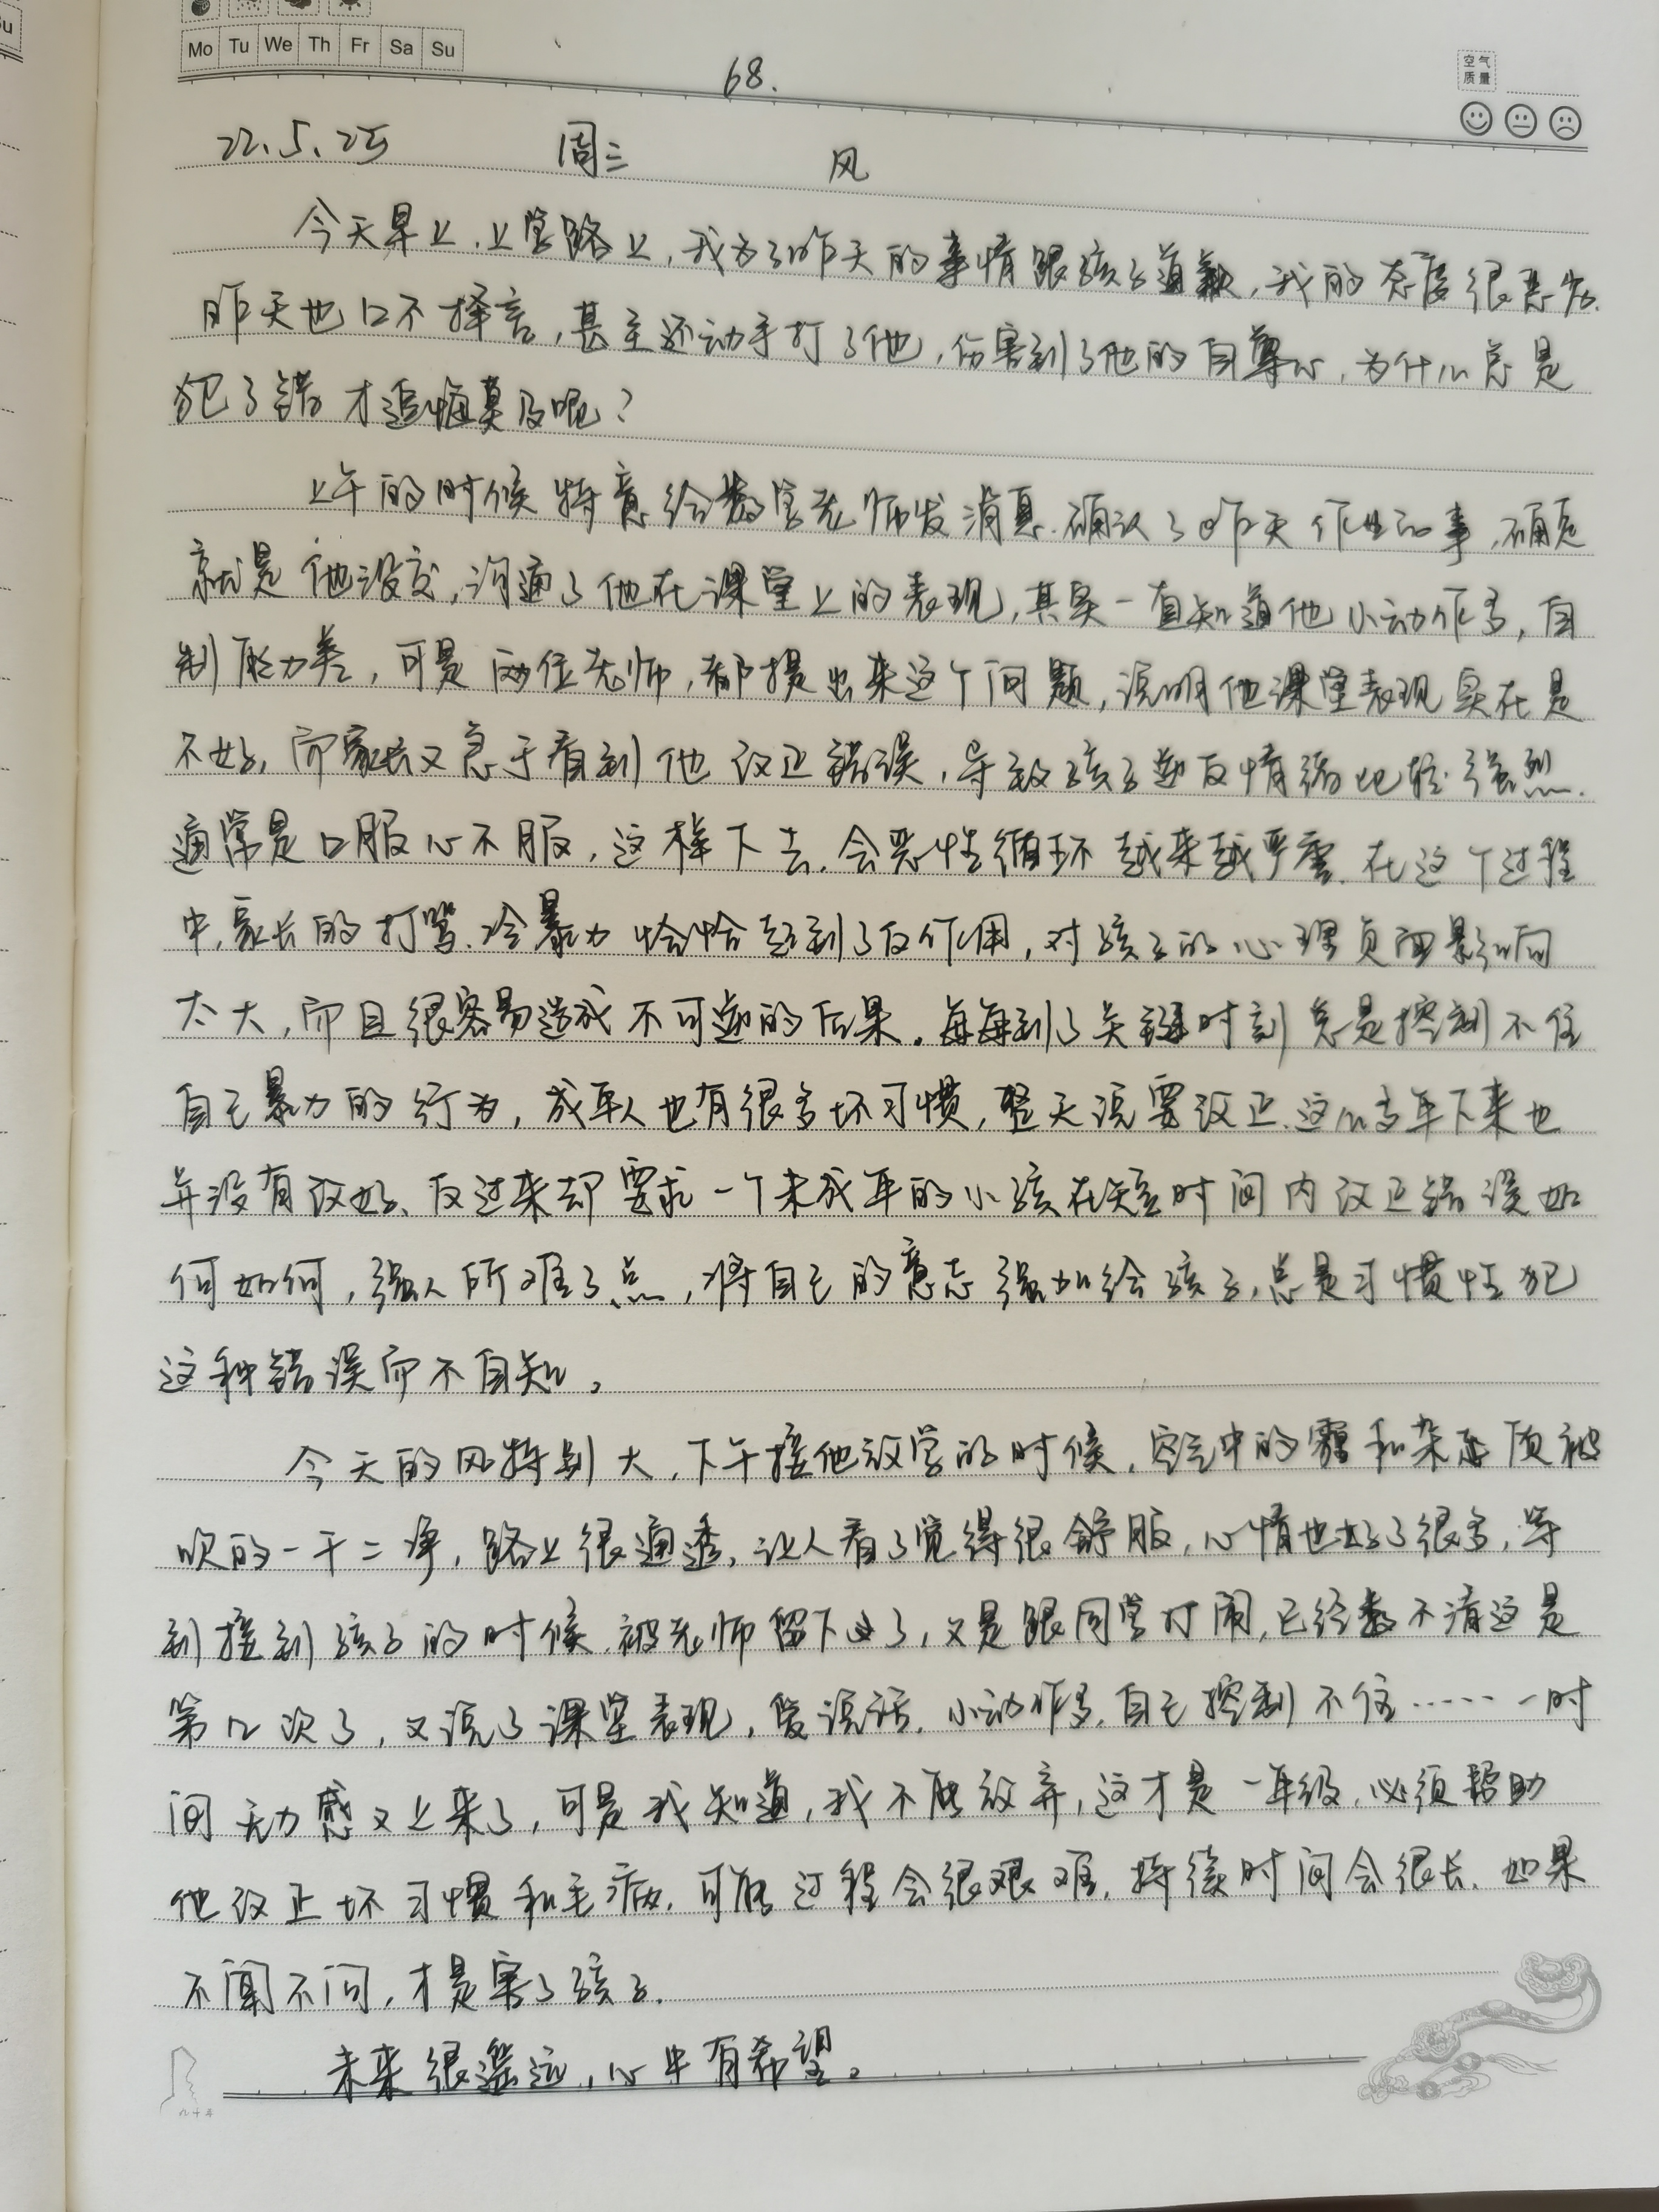 Mo Tu We Th Fr Sa Su
68.
空气
质量
22.5.25 周三 风
今天早上,上学路上,我为了昨天的事情跟孩子道歉,我的态度很恶劣.
昨天也口不择言,甚至还动手打了他,伤害到了他的自尊心,为什么总是
犯了错才追悔莫及呢?
上午的时候特意给数学老师发消息.确认了昨天作业的事,确定
就是他没交,沟通了他在课堂上的表现,其实一直知道他小动作多,自
制能力差,可是两位老师,都提出来这个问题,说明他课堂表现实在是
不好,而家长又急于看到他改正错误,导致孩子逆反情绪比较强烈.
通常是口服心不服,这样下去.会恶性循环越来越严重.在这个过程
中,家长的打骂.冷暴力恰恰起到了反作用,对孩子的心理负面影响
太大,而且很容易造成不可逆的后果。每每到了关键时刻总是控制不住
自己暴力的行为,成年人也有很多坏习惯,整天说要改正.这么多年下来也
并没有改好、反过来却要求一个未成年的小孩在短时间内改正错误如
何如何,强人所难了点,将自己的意志强加给孩子,总是习惯性犯
这种错误而不自知。
今天的风特别大,下午接他放学的时候,空气中的霾和杂质被
吹的一干二净,路上很通透,让人看了觉得很舒服,心情也好了很多,等
到接到孩子的时候.被老师留下了,又是跟同学打闹,已经数不清这是
第几次了,又说了课堂表现,爱说话.小动作多,自己控制不住……一时
间无力感又上来了,可是我知道,我不能放弃,这才是一年级,必须帮助
他改正坏习惯和毛病,可能过程会很艰难,持续时间会很长.如果
不闻不问,才是害了孩子.
未来很遥远,心中有希望。